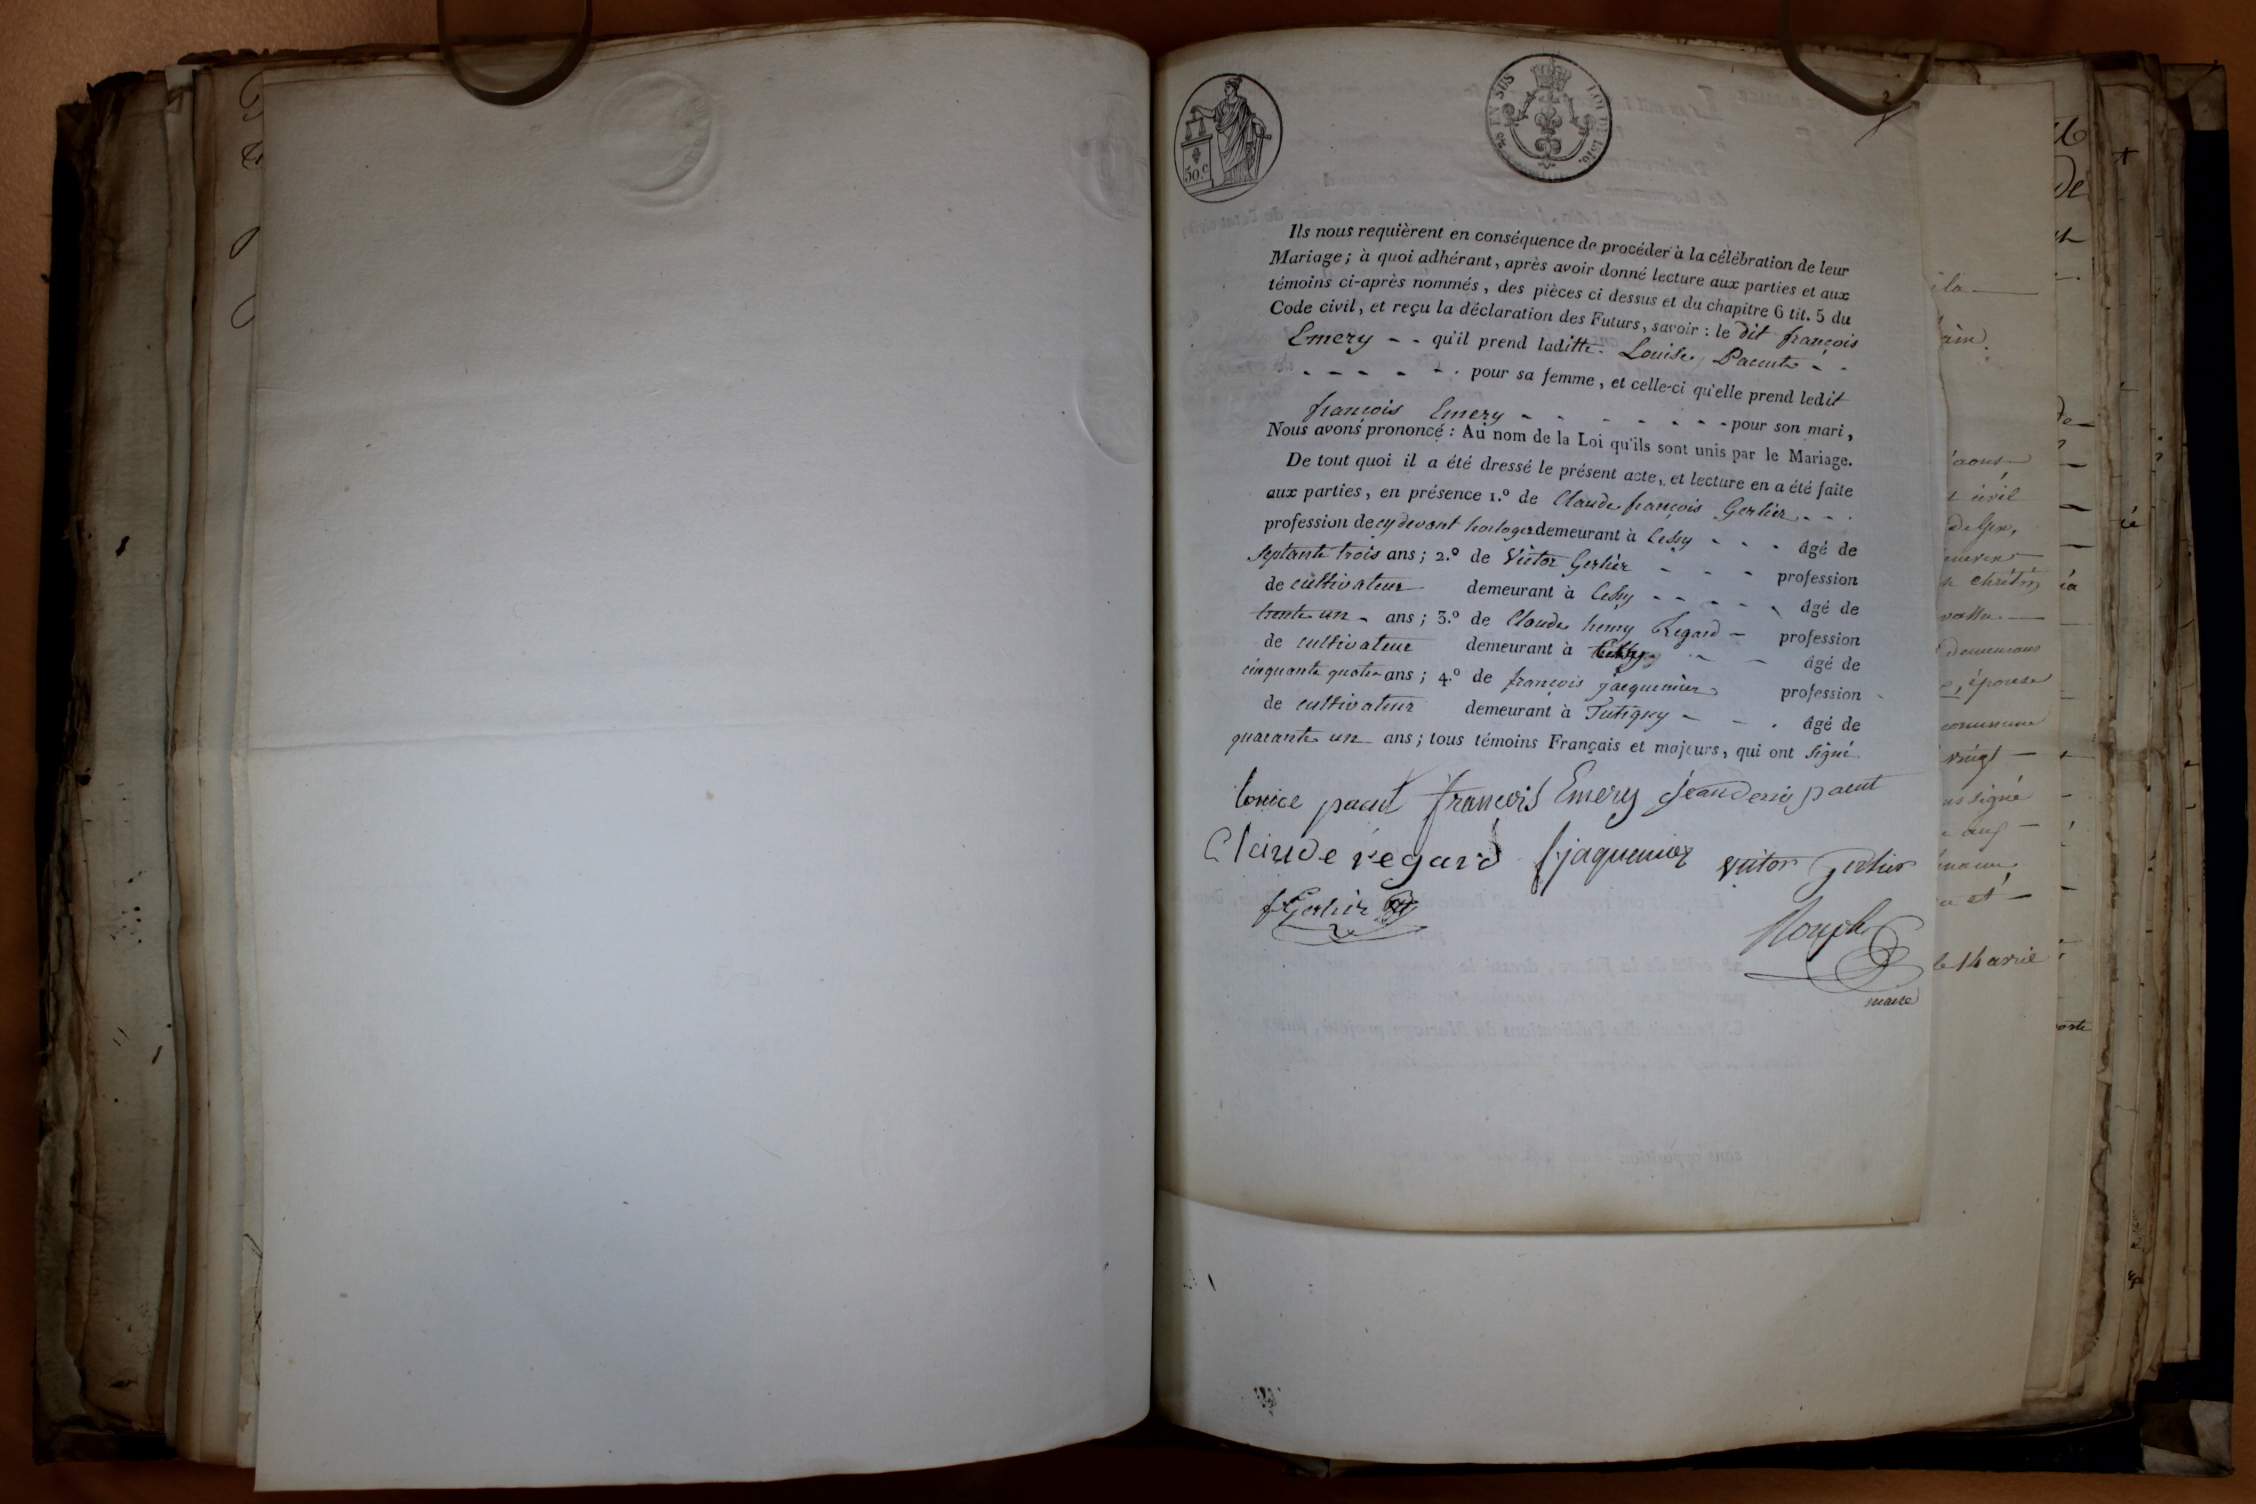 30.c
EN SUS
LOI DE 1816.
Ils nous requièrent en conséquence de procéder à la célébration de leur
Mariage; à quoi adhérant, après avoir donné lecture aux parties et aux
témoins ci-après nommés, des pièces ci dessus et du chapitre 6 tit. 5 du
Code civil, et reçu la déclaration des Futurs, savoir : le dit françois
Emery - - qu'il prend laditte Louise Pacut - -
- - - - - - pour sa femme, et celle-ci qu'elle prend ledit
françois Emery - - - - - - - pour son mari,
Nous avons prononcé : Au nom de la Loi qu'ils sont unis par le Mariage.
De tout quoi il a été dressé le présent acte, et lecture en a été faite
aux parties, en présence 1.º de Claude françois Gerlier - - -
profession de cy devant horloger demeurant à Cessy - - - âgé de
septante trois ans; 2.º de Victor Gerlier - - - profession
de cultivateur demeurant à Cessy - - - - - âgé de
trente un - ans; 3.º de Claude henry Regard - profession
de cultivateur demeurant à - - âgé de
cinquante quatre ans; 4.º de françois jacquemier profession
de cultivateur demeurant à Tutigny - - - âgé de
quarante un ans; tous témoins Français et majeurs, qui ont signé
louice pacut françois Emery jean denis pacut
Claude regard f jaquemier victor gerlier
f Gerlier
maire
ila
civil
de Gex,
épouse
commune
vingt
signé
le 14 avril